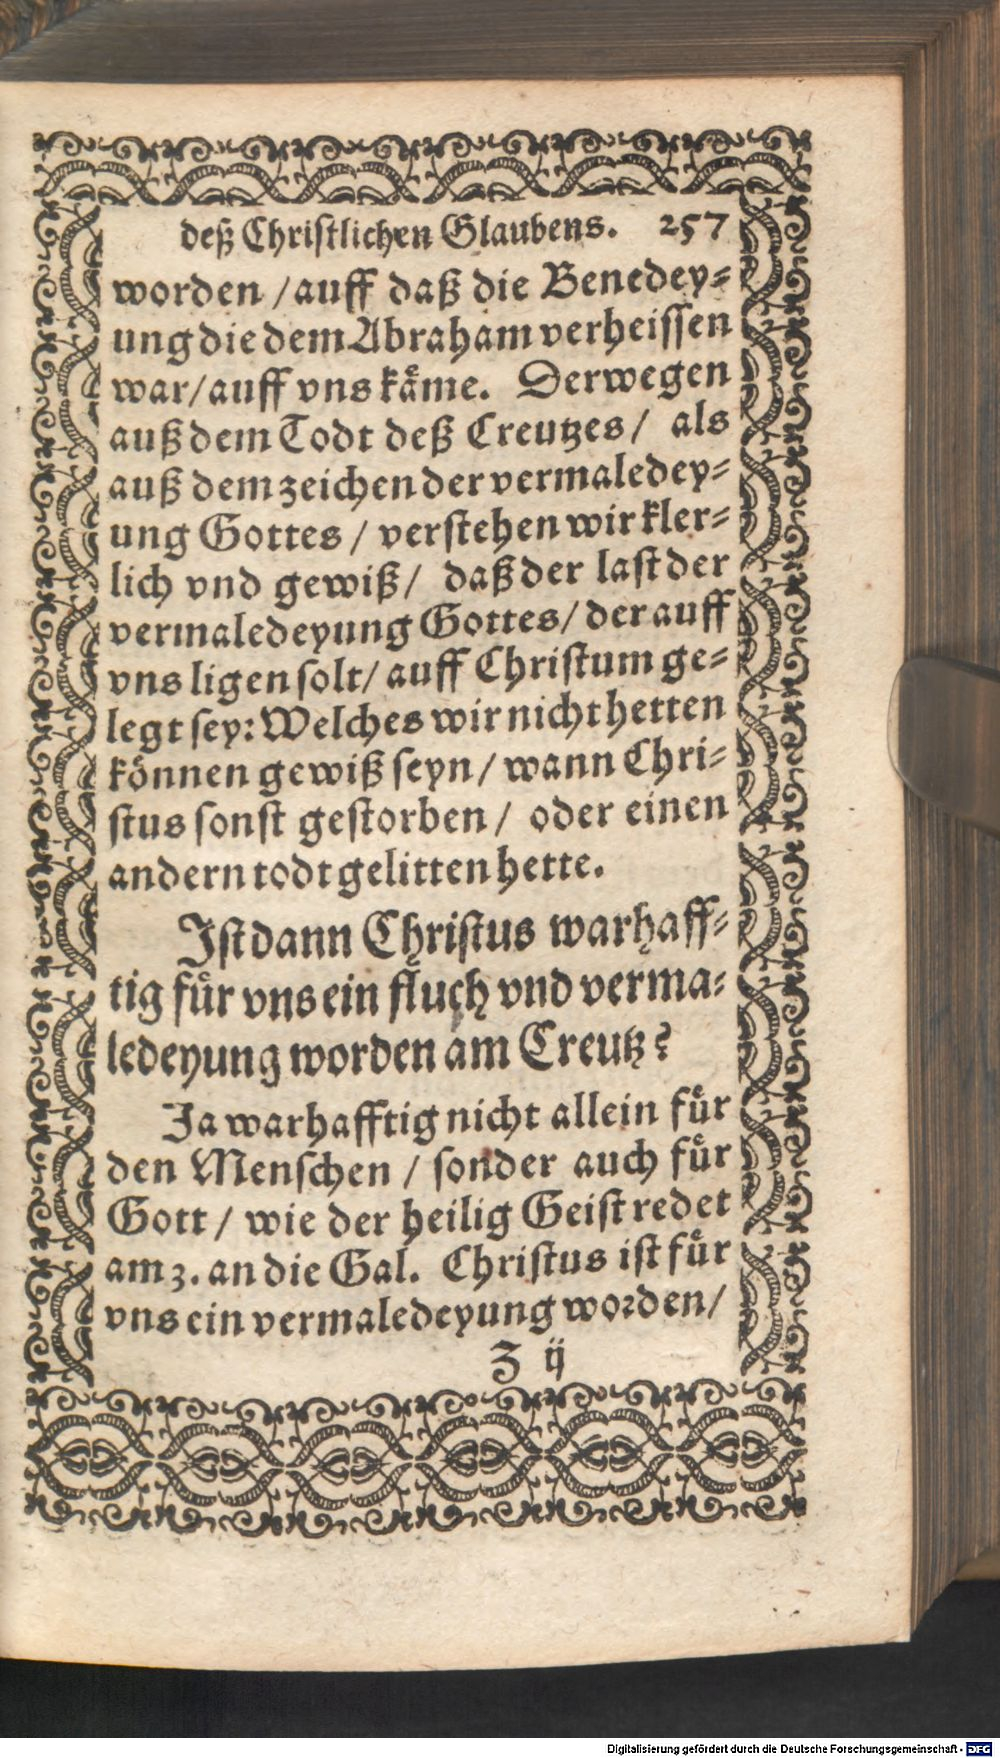 deß Christlichen Glaubens. 257
worden /auff daß die Benedey⸗
ung die dem Abraham verheissen
war/auff vns kaͤme. Derwegen
auß dem Todt deß Creutzes/ als
auß dem zeichen der vermaledey⸗
ung Gottes / verstehen wir kler⸗
lich vnd gewiß/ daß der last der
vermaledeyung Gottes/ der auff
vns ligen solt/ auff Christum ge⸗
legt sey: Welches wir nicht hetten
koͤnnen gewiß seyn / wann Chri⸗
stus sonst gestorben / oder einen
andern todt gelitten hette.
Ist dann Christus warhaff⸗
tig fuͤr vns ein fluch vnd verma⸗
ledeyung worden am Creutz?
Ja warhafftig nicht allein fuͤr
den Menschen / sonder auch fuͤr
Gott / wie der heilig Geist redet
am 3. an die Gal. Christus ist fuͤr
vns ein vermaledeyung worden/
Z ij
Digitalisierung gefördert durch die Deutsche Forschungsgemeinschaft - DFG